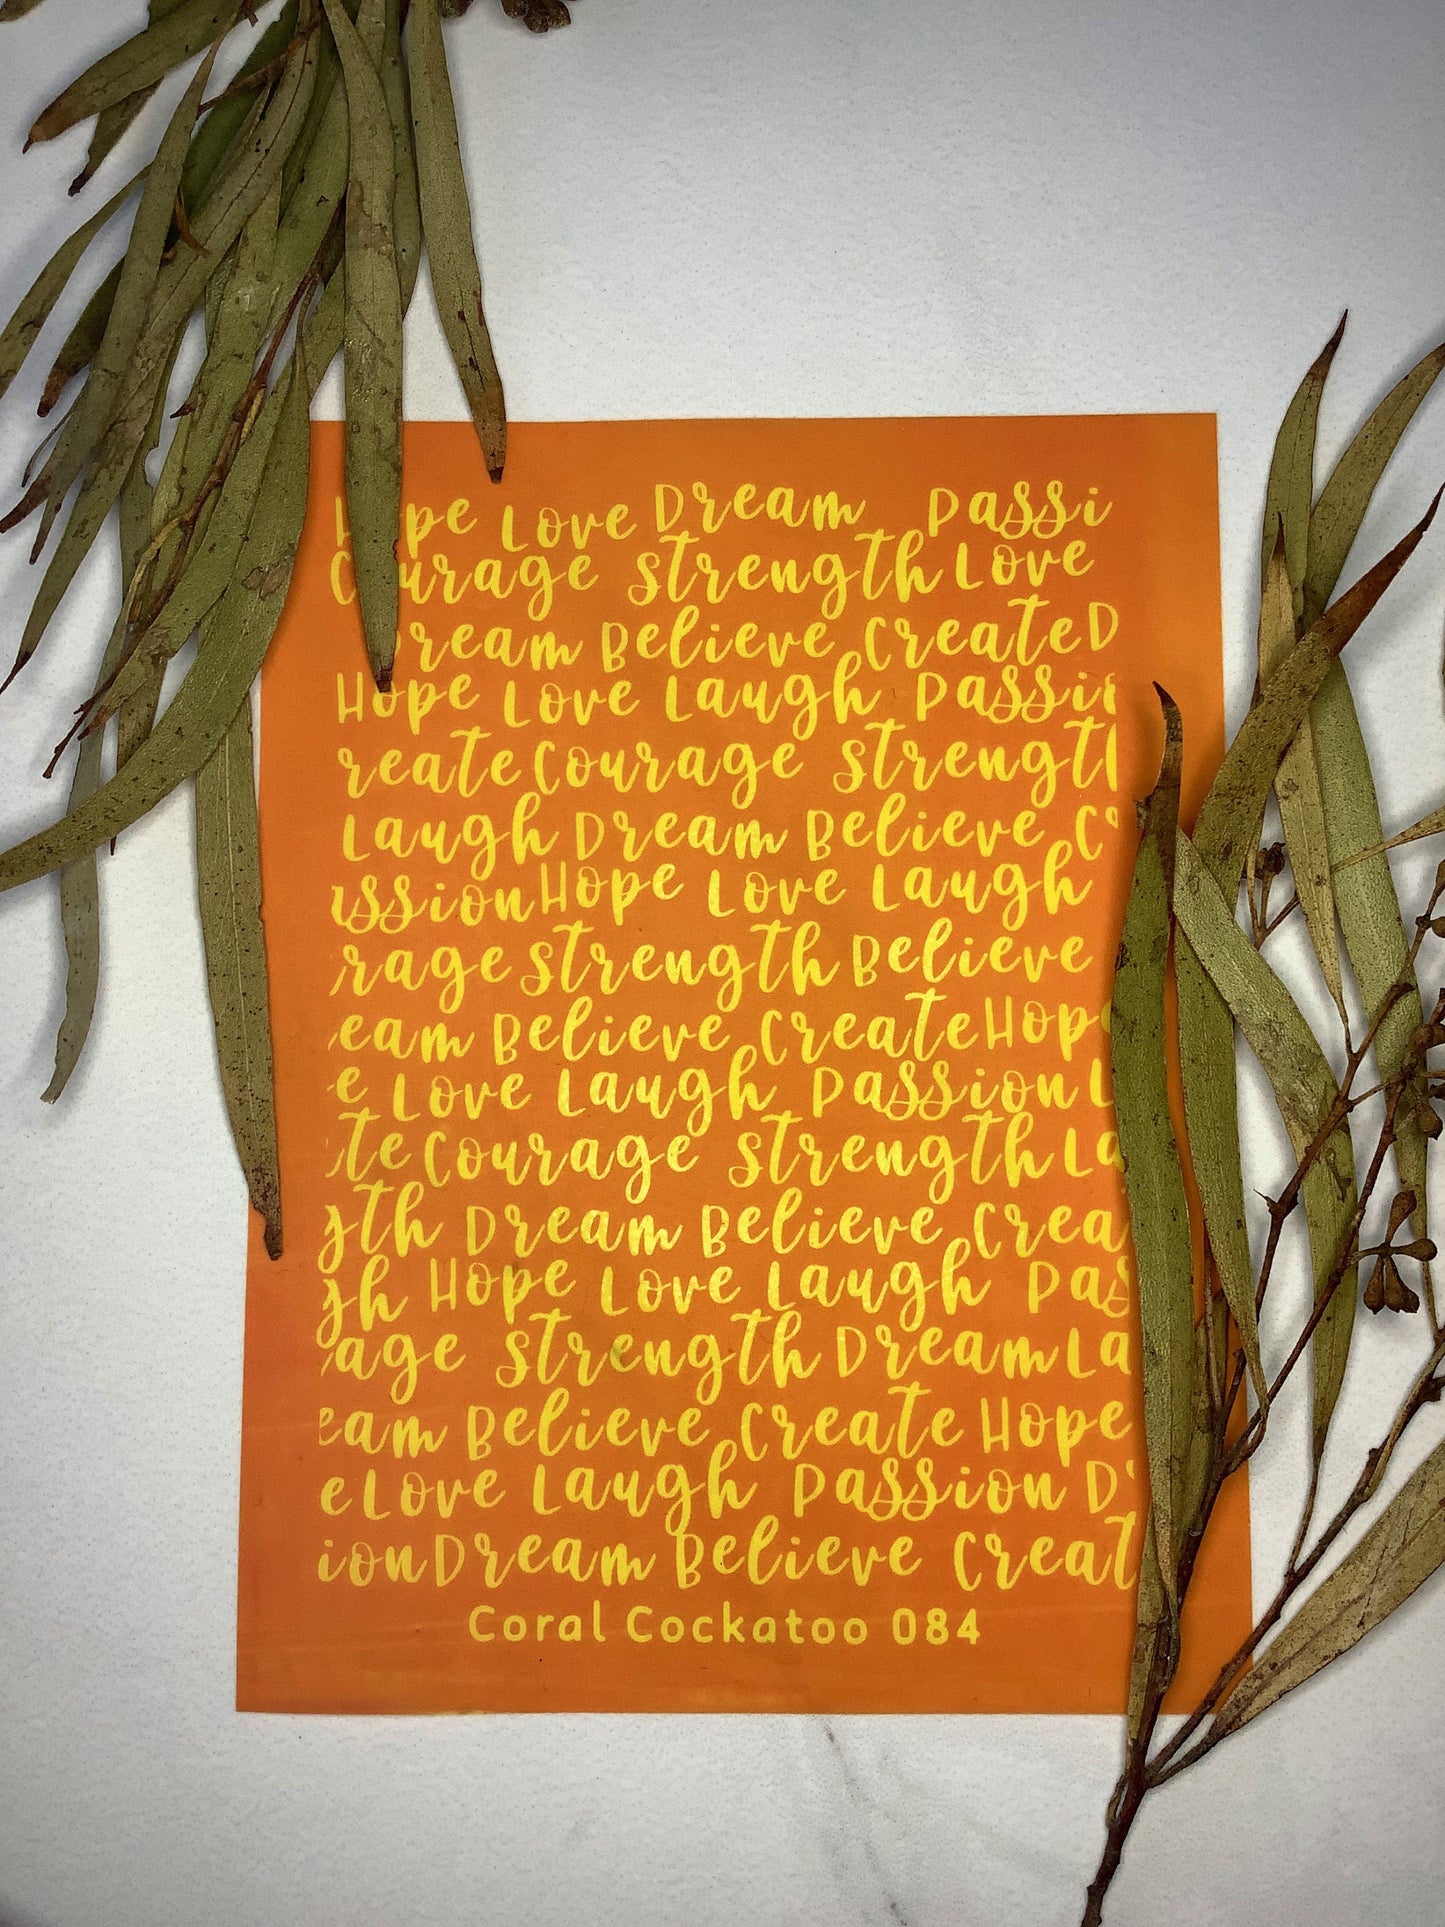 Hope Love Dream Passi
Courage Strength Love
Dream Believe Create D
Hope Love Laugh Passio
reate Courage Strengt
Laugh Dream Believe C
ssion Hope Love Laugh
rage Strength Believe
eam Believe Create Hop
e Love Laugh Passion L
te Courage Strength La
gth Dream Believe Crea
gh Hope Love Laugh Pas
age Strength Dream La
eam Believe Create Hope
e Love Laugh Passion D
ion Dream Believe Creat
Coral Cockatoo 084